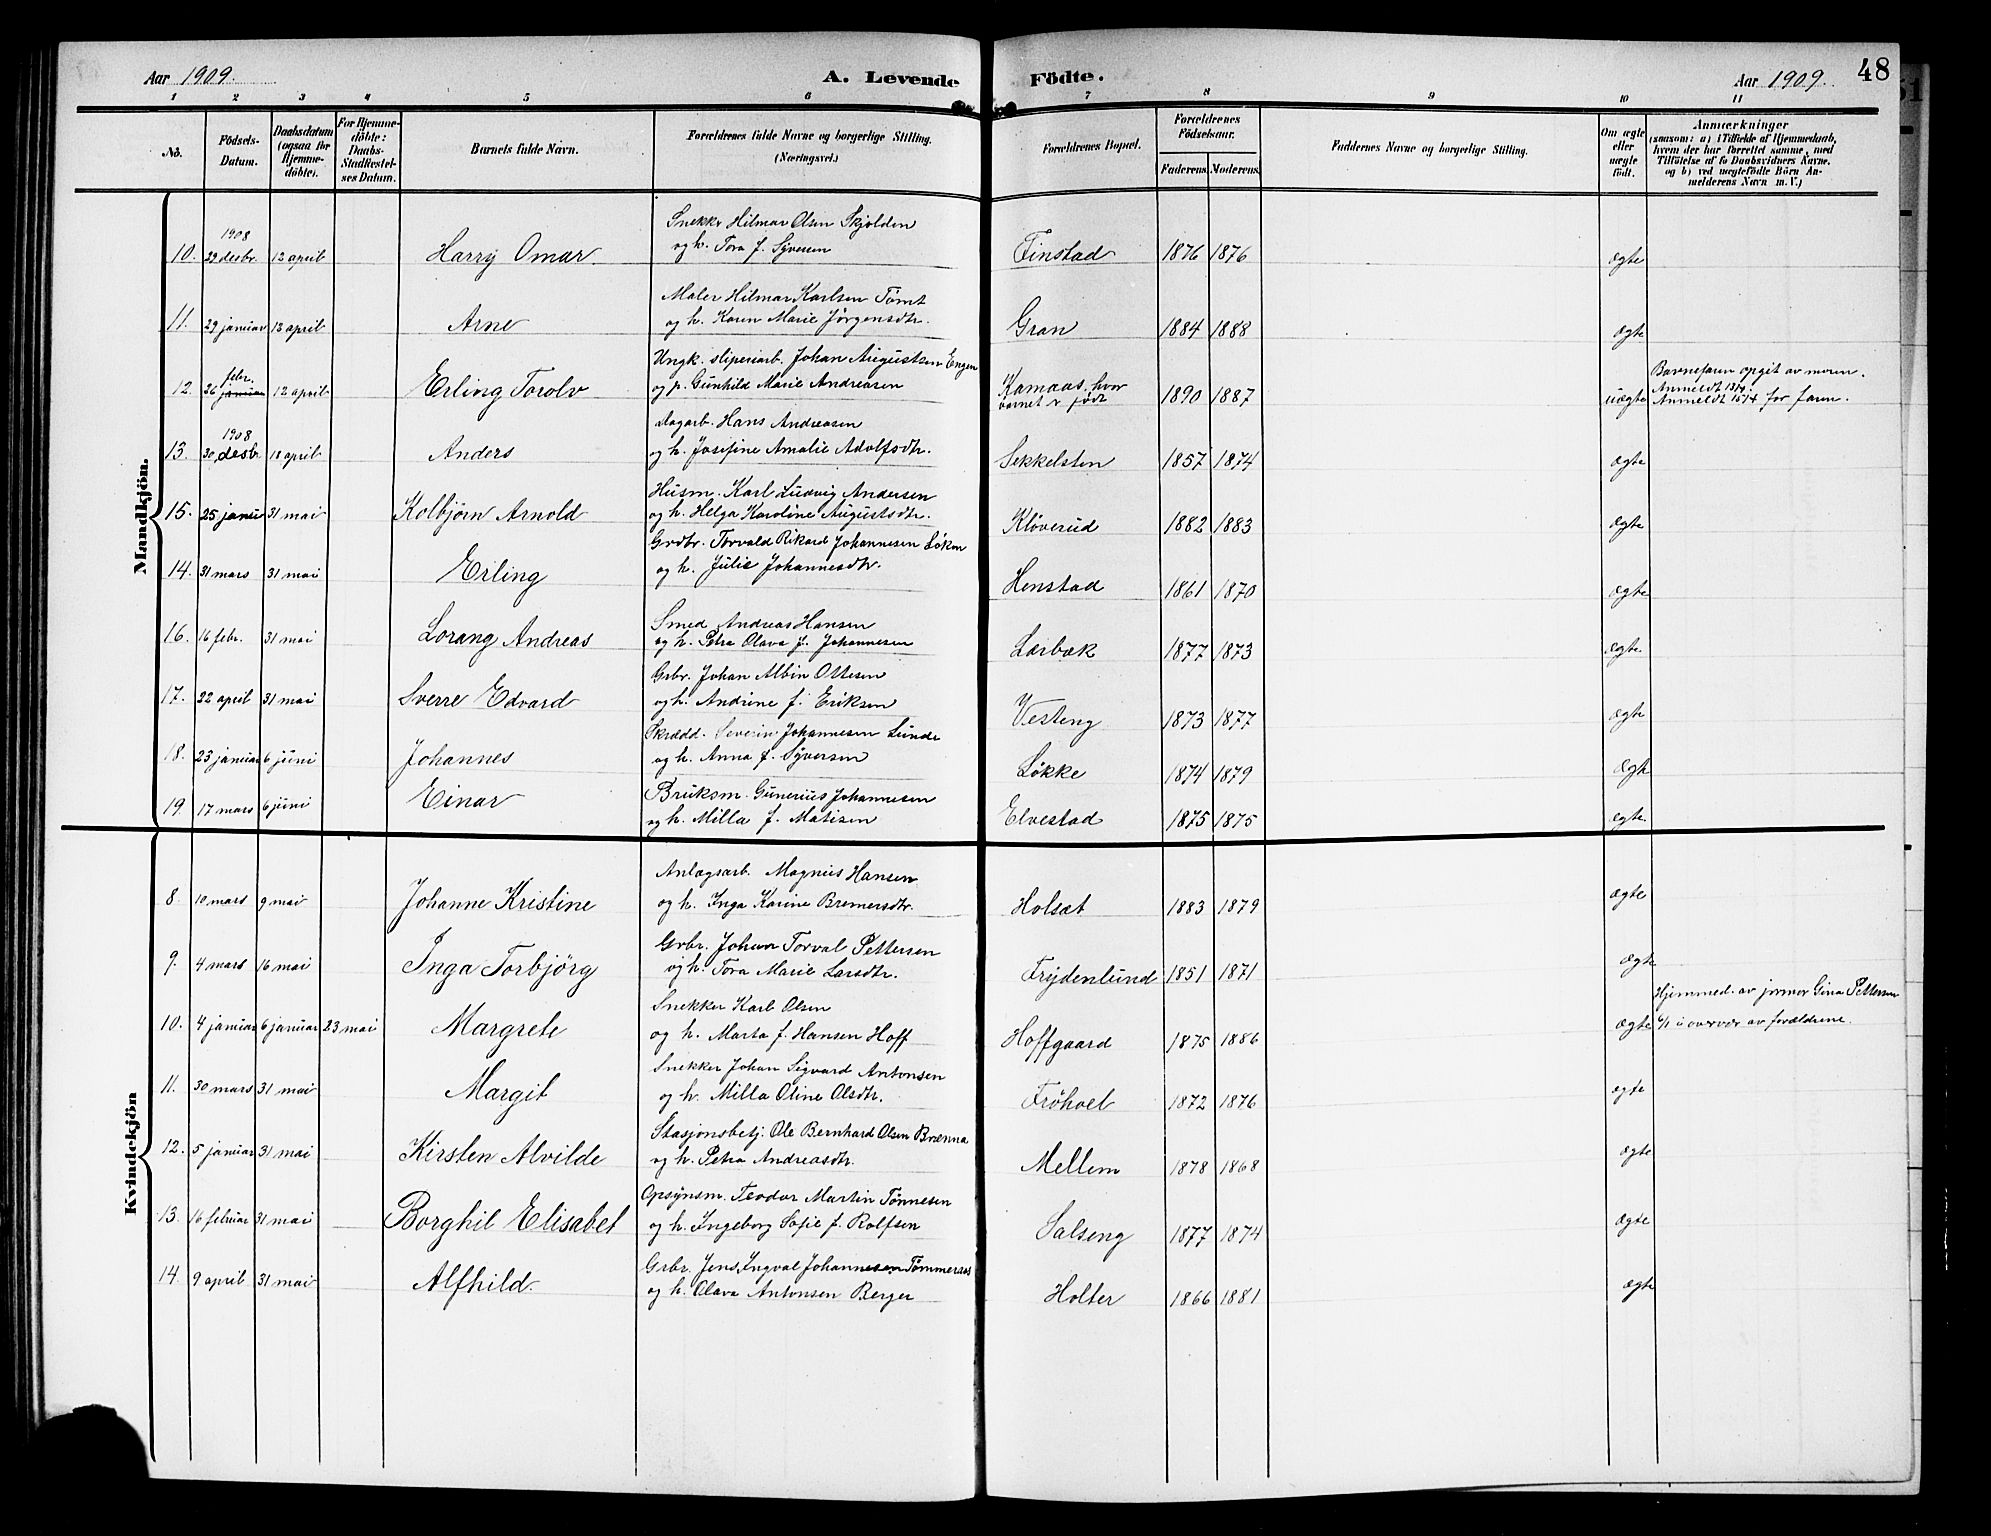 Aar 1909. A. Levende Födte. Aar 1909. 48
1 2 3 4 5 6 7 8 9 10 11
No. Födsels-Datum. Daabsdatum (ogsaa for Hjemme-döbte). For Hjemme-döbte: Daabs-Stadfæstel-ses Datum. Barnets fulde Navn. Forældrenes fulde Navne og borgerlige Stilling. (Næringsvei.) Forældrenes Bopæl. Forældrenes Födselsaar. Faderens. Moderens. Faddernes Navne og borgerlige Stilling. Om ægte eller uægte födt. Anmærkninger (saasom: a) i Tilfælde af Hjemmedaab, hvem der har forrettet samme, med Tilföielse af to Daabsvidners Navne, og b) ved uægtefödte Börn An-melderens Navn m. V.)
Mandkjön.
Snekker Hilmar Olsen Skjolden
10. 1908 29 desbr. 12 april Harry Omar. og h. Tora f. Syversen Finstad 1876 1876 ægte
Maler Hilmar Karlsen Tömt
11. 29 januar 12 april Arne og h. Karen Marie Jörgensdtr. Gran 1884 1888 ægte
Ungk. sliperiarb. Johan Augustsen Engen
12. 26 febr. januar 12 april Erling Torolv og p. Gunhild Marie Andreasen Kamaas, hvor barnet er födt 1890 1887 uægte Barnefaren opgit av moren. Anmeldt 13/4. Anmeldt 15/4 for faren.
Dagarb. Hans Andreasen
13. 1908 30 desbr 18 april Anders og h. Josefine Amalie Adolfsdtr. Sekkelsten 1857 1874 ægte
Husm. Karl Ludvig Andersen
15. 25 janu 31 mai Kolbjörn Arnold og h. Helga Karoline Augustsdtr. Klöverud 1882 1883 ægte
Grdbr. Torvald Rikard Johannesen Löken
14. 31 mars 31 mai Erling og h. Julie Johannesdtr. Henstad 1861 1870 ægte
Smed Andreas Hansen
16. 16 febr. 31 mai Lorang Andreas og h. Petra Olava f. Johannesen Lærbæk 1877 1873 ægte
Grbr. Johan Albin Ottesen
17. 22 april 31 mai Sverre Edvard og h. Andrine f. Eriksen Vesteng 1873 1877 ægte
Skrædd. Severin Johannesen Lunde
18. 23 januar 6 juni Johannes og h. Anna f. Syversen Lökke 1874 1879 ægte
Bruksm. Gunerius Johannesen
19. 17 mars 6 juni Einar og h. Milla f. Matisen Elvestad 1875 1875 ægte.
Kvindekjön
Anlægsarb. Magnus Hansen
8. 10 mars 9 mai Johanne Kristine og h. Inga Karine Bremersdtr. Holsæt 1883 1879 ægte
Grbr. Johan Torval Pettersen
9. 4 mars 16 mai Inga Torbjörg og h. Tora Marie Larsdtr. Frydenlund 1851 1871 ægte
Snekker Karl Olsen
10. 4 januar 6 januar 23 mai Margrete og h. Marta f. Hansen Hoff Hoffgaard 1875 1886 ægte Hjemmed. av jormor Gina Pettersen 6/1 i overvær av forældrene.
Snekker Johan Sigvard Antonsen
11. 30 mars 31 mai Margit og h. Milla Oline Olsdtr. Fröhoel 1872 1876 ægte
Stasjonsbetj. Ole Bernhard Olsen Brænna
12. 5 januar 31 mai Kirsten Alvilde og h. Petra Andreasdtr. Mellem 1878 1868 ægte
Opsynsm. Teodor Martin Tönnesen
13. 16 februar 31 mai Borghil Elisabet og h. Ingeborg Sofie f. Rolfsen Salseng 1877 1874 ægte
Grbr. Jens Ingval Johannesen Tömmeraas
14. 9 april 31 mai Alfhild. og h. Olava Antonsen Berger Holter 1866 1881 ægte